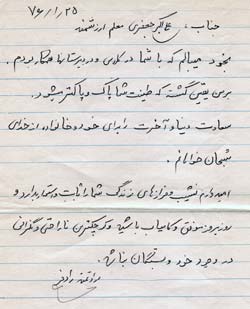 ۷۶/۱/۲۵
جناب، علی اکبر جعفری معلم ارزشمند
بخود میبالم که با شما در کلاس و در دبیرستانها همکار بودم.
برمن یقین گشت که طینت شما پاک و پاکتر میشود.
سعادت دنیا و آخرت را برای خود و خانواده از خدای
سبحان خواهانم.
امیدوارم نشیب و فرازهای زندگی شما را ثابت و استوار بدارد و
روز بروز موفق و کامیاب باشید و کوچکترین ناراحتی و نگرانی
در وجود خود و بستگان نباشد.